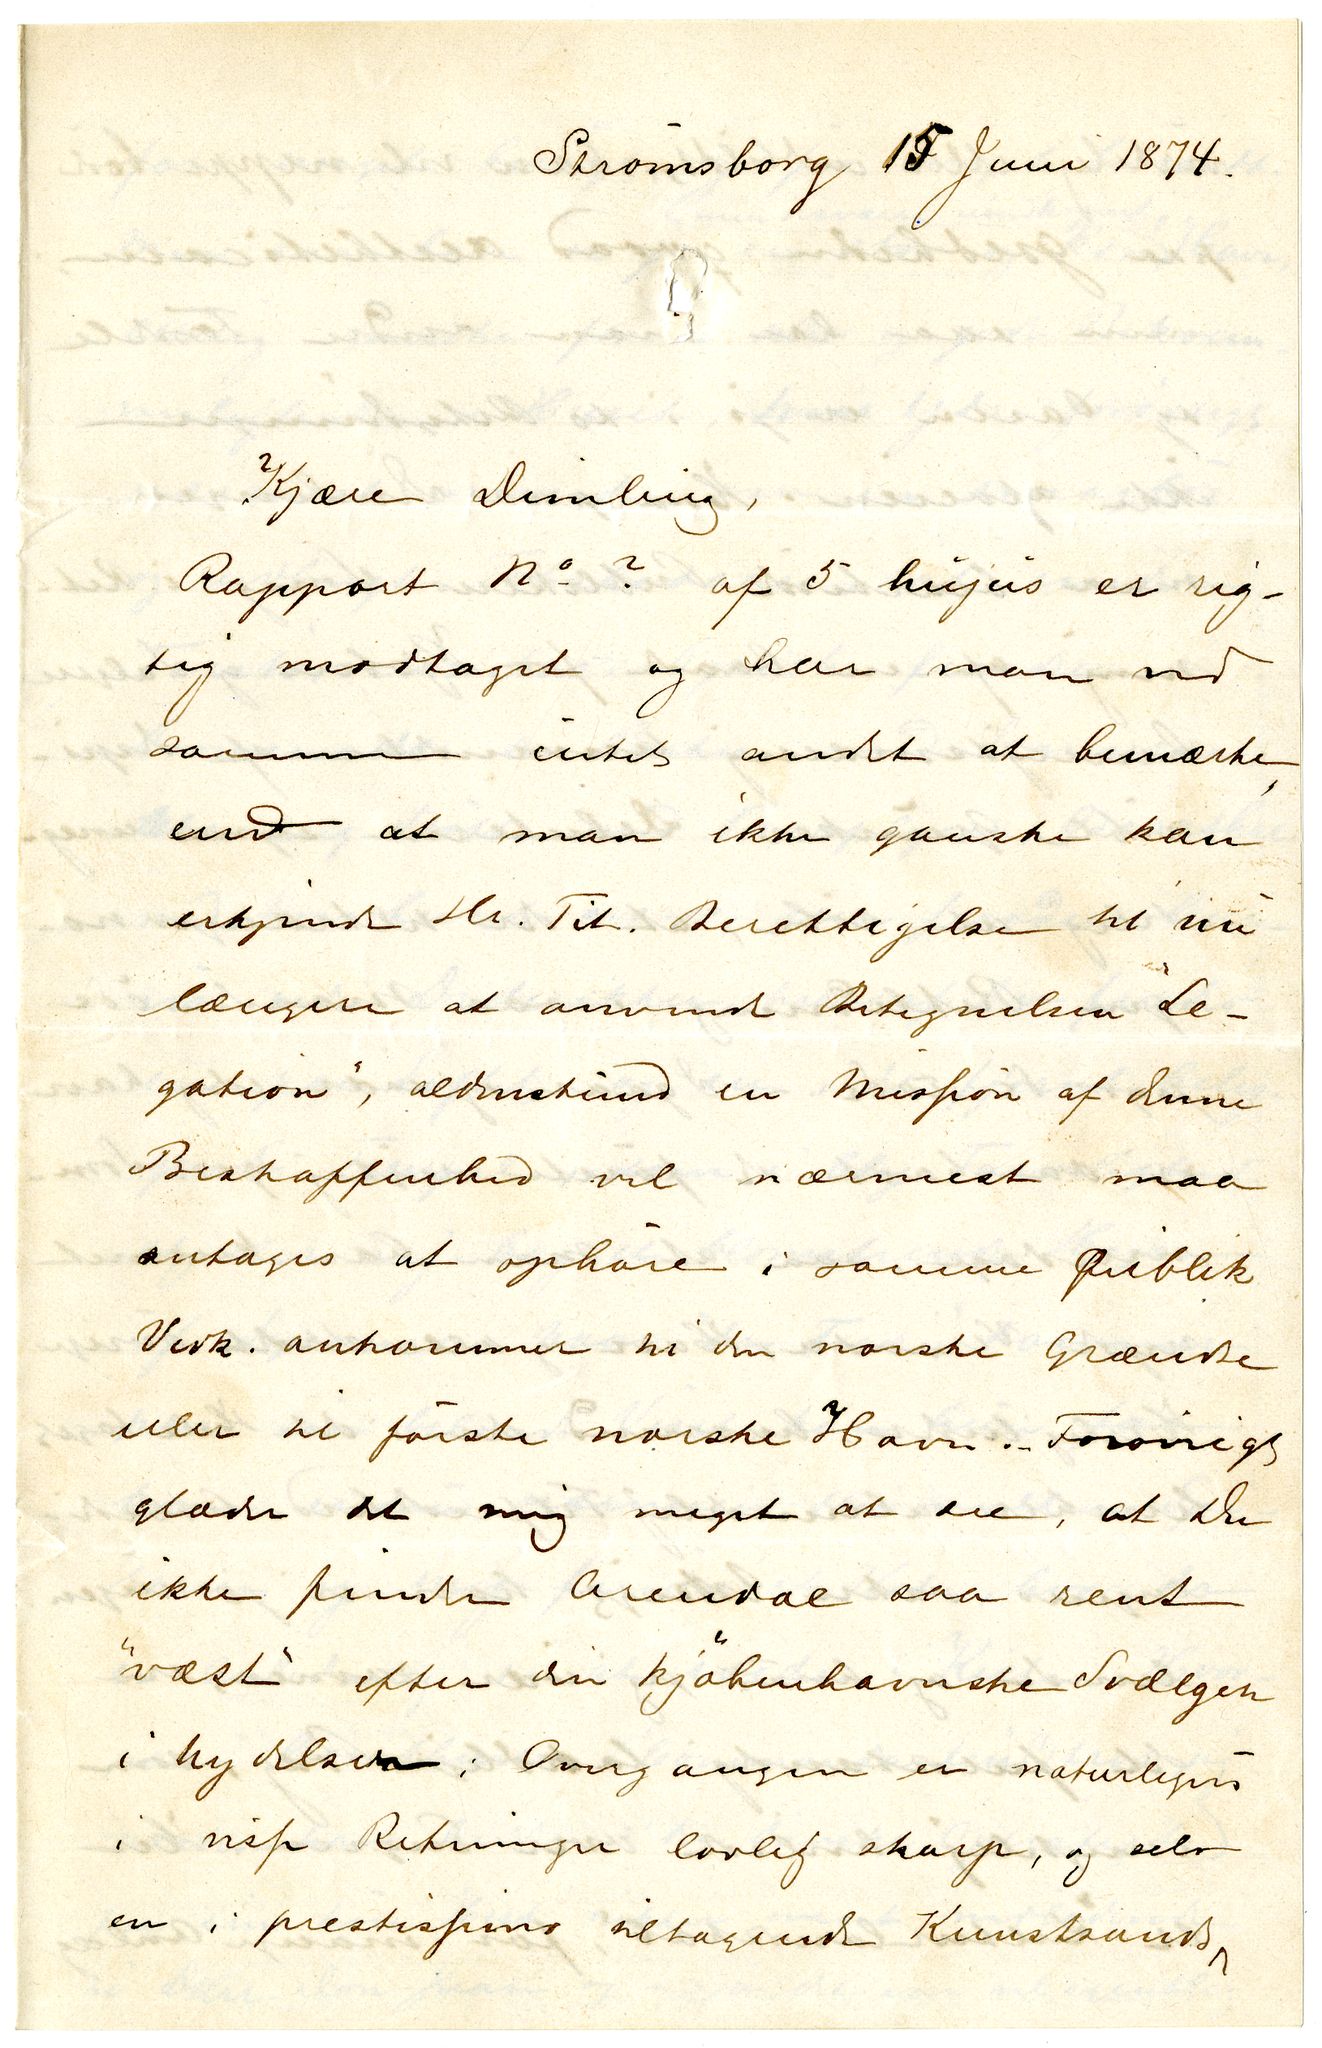 Strömsborg 15 Juni 1874.
Kjære Dimling,
Rapport No. ? af 5 hujus er rig-
tig modtaget og har man ved
samme intet andet at bemærke,
end at man ikke ganske kan
erkjende Hr. Tit. Berettigelse til nu
længere at anvende Betegnelsen "Le-
gation", aldenstund en Mission af denne
Beskaffenhed vel nærmest maa
antages at ophöre i samme Öieblik
Vedk. ankommer til den norske Grændse
eller til förste norske Havn. – Forövrigt
glæder det mig meget at see, at Du
ikke finder Arendal saa rent
"væst" efter din kjöbenhavnske Svælgen
i Nydelser; Overgangen er naturligvis
i visse Retninger lovlig skarp, og selv
en i prestissimo tiltagende Kunstsands,